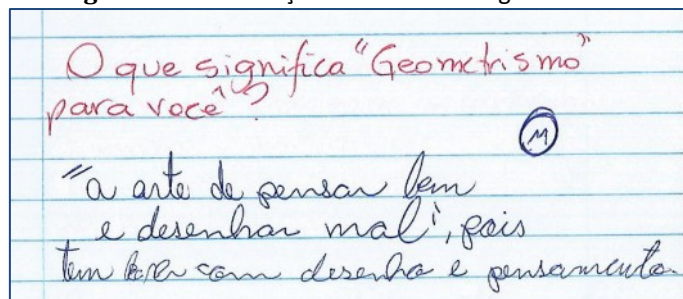 O que significa "Geometrismo"
para você?
M
"a arte de pensar bem
e desenhar mal", pois
tem com desenho e pensamento.